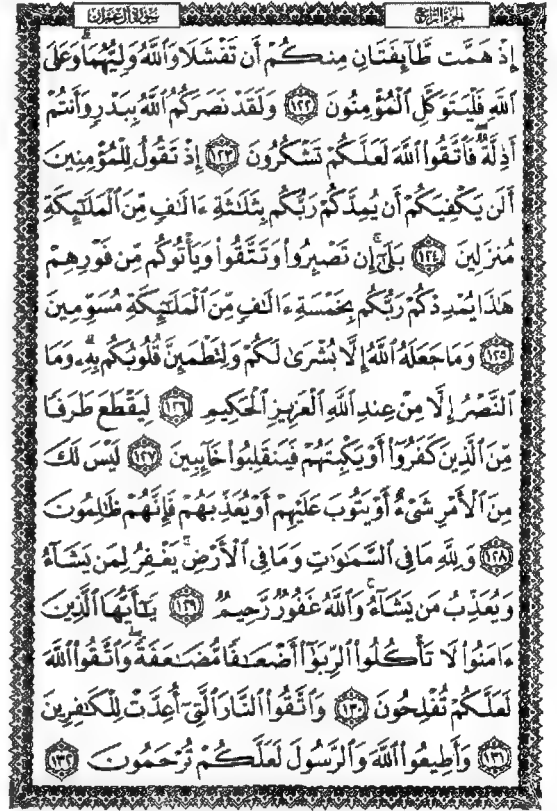 الجزء الرابع
سورة آل عمران
إِذْ هَمَّت طَّآئِفَتَانِ مِنكُمْ أَن تَفْشَلَا وَٱللَّهُ وَلِيُّهُمَا ۗ وَعَلَى
ٱللَّهِ فَلْيَتَوَكَّلِ ٱلْمُؤْمِنُونَ ١٢٢ وَلَقَدْ نَصَرَكُمُ ٱللَّهُ بِبَدْرٍ وَأَنتُمْ
أَذِلَّةٌ ۖ فَٱتَّقُوا۟ ٱللَّهَ لَعَلَّكُمْ تَشْكُرُونَ ١٢٣ إِذْ تَقُولُ لِلْمُؤْمِنِينَ
أَلَن يَكْفِيَكُمْ أَن يُمِدَّكُمْ رَبُّكُم بِثَلَٰثَةِ ءَالَٰفٍ مِّنَ ٱلْمَلَٰٓئِكَةِ
مُنزَلِينَ ١٢٤ بَلَىٰٓ ۚ إِن تَصْبِرُوا۟ وَتَتَّقُوا۟ وَيَأْتُوكُم مِّن فَوْرِهِمْ
هَٰذَا يُمْدِدْكُمْ رَبُّكُم بِخَمْسَةِ ءَالَٰفٍ مِّنَ ٱلْمَلَٰٓئِكَةِ مُسَوِّمِينَ
١٢٥ وَمَا جَعَلَهُ ٱللَّهُ إِلَّا بُشْرَىٰ لَكُمْ وَلِتَطْمَئِنَّ قُلُوبُكُم بِهِۦ ۗ وَمَا
ٱلنَّصْرُ إِلَّا مِنْ عِندِ ٱللَّهِ ٱلْعَزِيزِ ٱلْحَكِيمِ ١٢٦ لِيَقْطَعَ طَرَفًا
مِّنَ ٱلَّذِينَ كَفَرُوٓا۟ أَوْ يَكْبِتَهُمْ فَيَنقَلِبُوا۟ خَآئِبِينَ ١٢٧ لَيْسَ لَكَ
مِنَ ٱلْأَمْرِ شَىْءٌ أَوْ يَتُوبَ عَلَيْهِمْ أَوْ يُعَذِّبَهُمْ فَإِنَّهُمْ ظَٰلِمُونَ
١٢٨ وَلِلَّهِ مَا فِى ٱلسَّمَٰوَٰتِ وَمَا فِى ٱلْأَرْضِ ۚ يَغْفِرُ لِمَن يَشَآءُ
وَيُعَذِّبُ مَن يَشَآءُ ۚ وَٱللَّهُ غَفُورٌ رَّحِيمٌ ١٢٩ يَٰٓأَيُّهَا ٱلَّذِينَ
ءَامَنُوا۟ لَا تَأْكُلُوا۟ ٱلرِّبَوٰٓا۟ أَضْعَٰفًا مُّضَٰعَفَةً ۖ وَٱتَّقُوا۟ ٱللَّهَ
لَعَلَّكُمْ تُفْلِحُونَ ١٣٠ وَٱتَّقُوا۟ ٱلنَّارَ ٱلَّتِىٓ أُعِدَّتْ لِلْكَٰفِرِينَ
١٣١ وَأَطِيعُوا۟ ٱللَّهَ وَٱلرَّسُولَ لَعَلَّكُمْ تُرْحَمُونَ ١٣٢